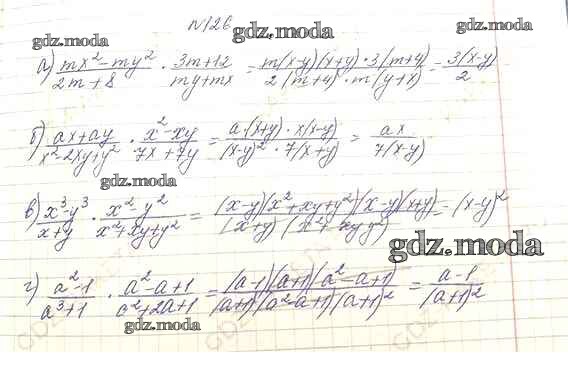 N126
gdz.moda
gdz.moda
а) (mx² - my²)/(2m + 8) · (3m + 12)/(my + mx) = (m(x-y)(x+y) · 3(m+4))/(2(m+4) · m(y+x)) = 3(x-y)/2
gdz.moda
б) (ax + ay)/(x² - 2xy + y²) · (x² - xy)/(7x + 7y) = (a·(x+y) · x(x-y))/((x-y)² · 7(x+y)) = ax/(7(x-y))
в) (x³ - y³)/(x + y) · (x² - y²)/(x² + xy + y²) = ((x-y)(x² + xy + y²)(x-y)(x+y))/((x+y)(x² + xy + y²)) = (x-y)²
gdz.moda
г) (a² - 1)/(a³ + 1) · (a² - a + 1)/(a² + 2a + 1) = ((a-1)(a+1)(a² - a + 1))/((a+1)(a² - a + 1)(a+1)²) = (a-1)/(a+1)²
gdz.moda